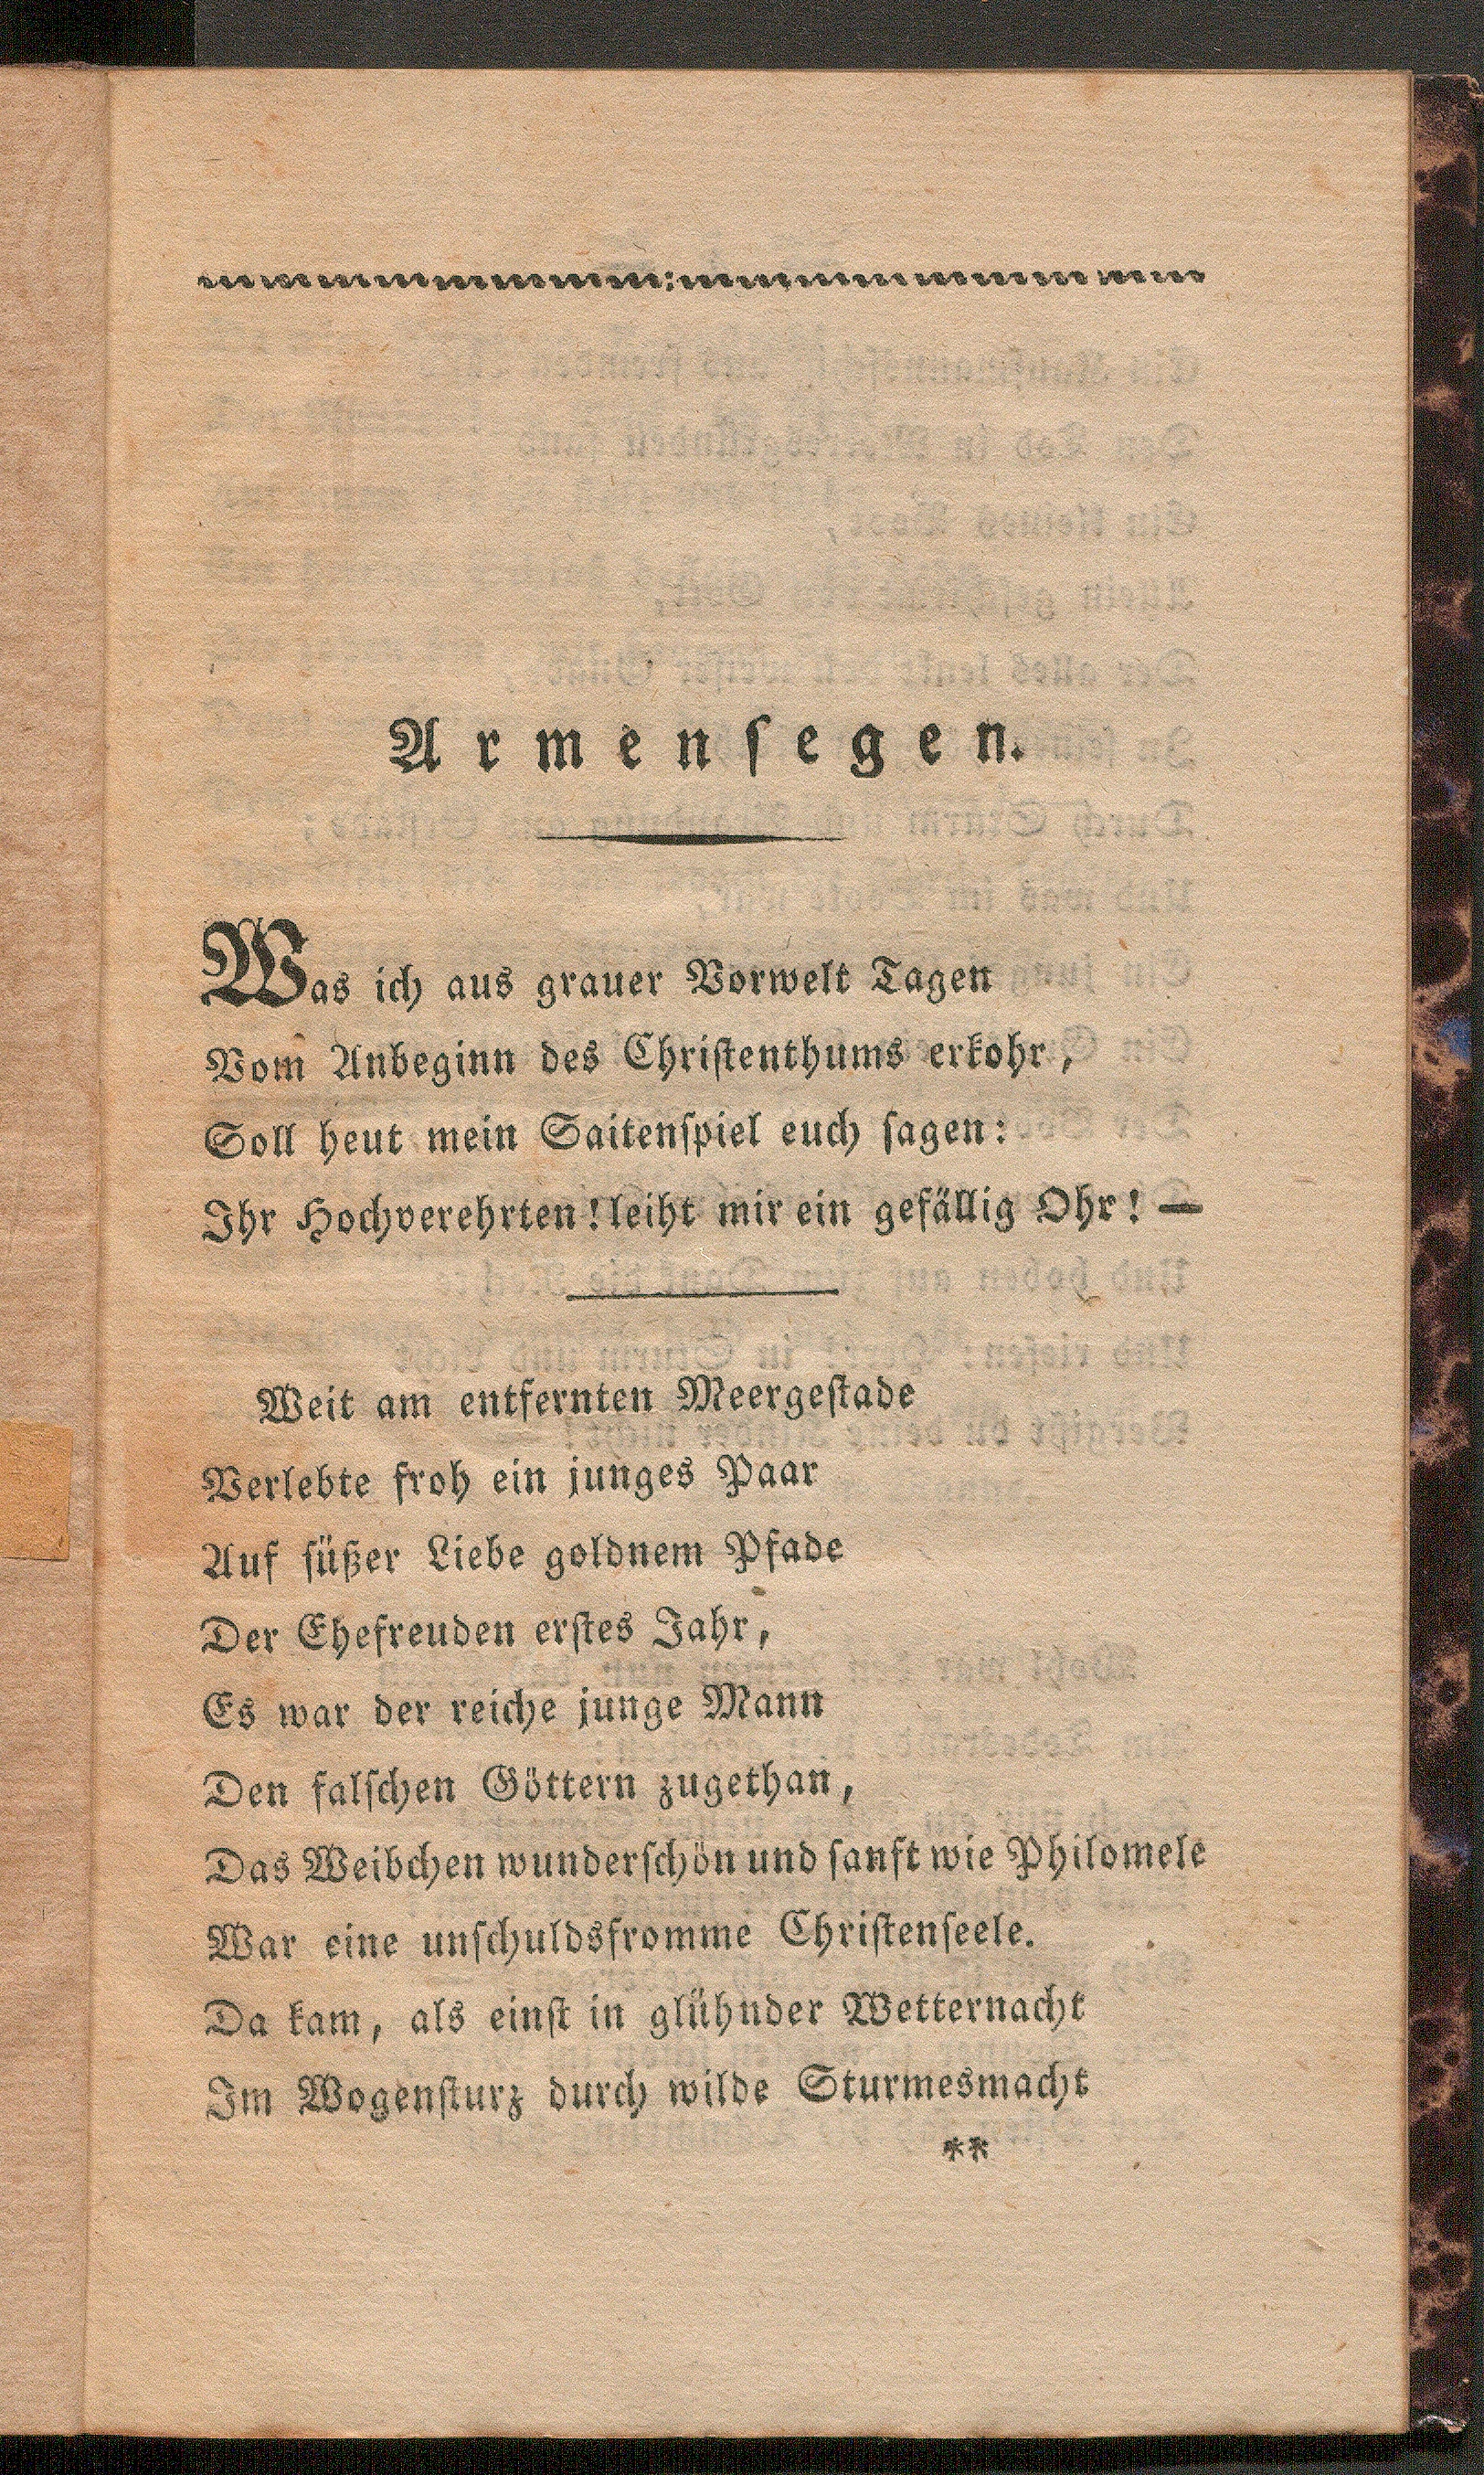 Armensegen.
Was ich aus grauer Vorwelt Tagen
Vom Anbeginn des Christenthums erkohr,
Soll heut mein Saitenspiel euch sagen:
Ihr Hochverehrten! leiht mir ein gefällig Ohr! —
Weit am entfernten Meergestade
Verlebte froh ein junges Paar
Auf süßer Liebe goldnem Pfade
Der Ehefreuden erstes Jahr,
Es war der reiche junge Mann
Den falschen Göttern zugethan,
Das Weibchen wunderschön und sanft wie Philomele
War eine unschuldsfromme Christenseele.
Da kam, als einst in glühnder Wetternacht
Im Wogensturz durch wilde Sturmesmacht
**